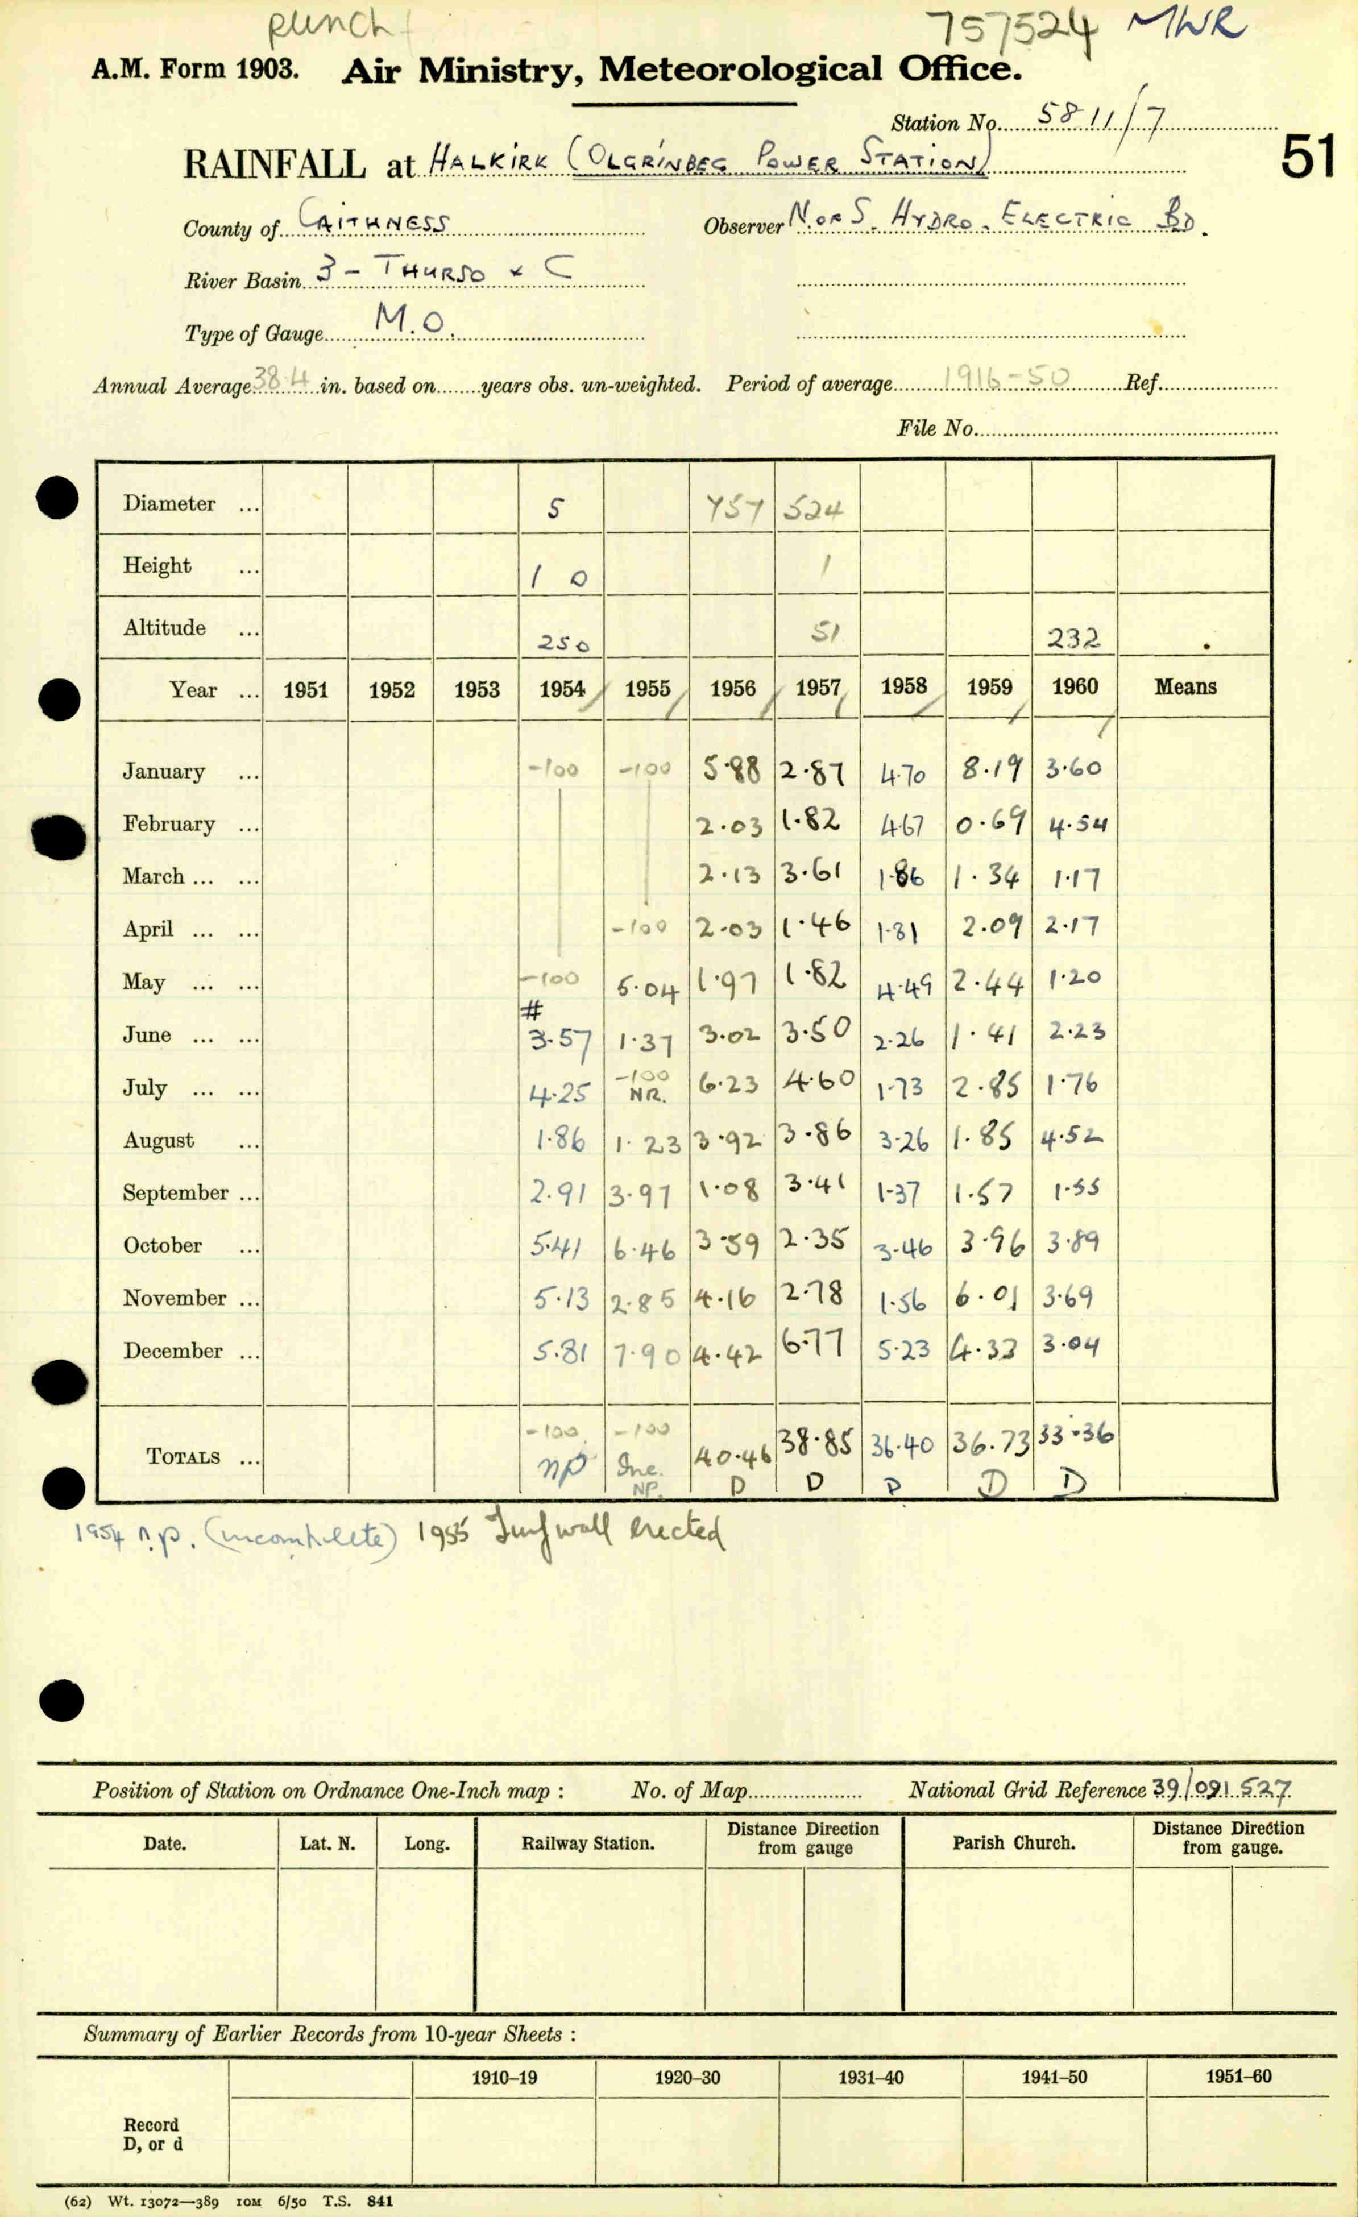 punch
757524 MWR
A.M. Form 1903. Air Ministry, Meteorological Office.
Station No. 5811/7
51
RAINFALL at HALKIRK (OLGRINBEG POWER STATION)
County of CAITHNESS Observer N. OF S. HYDRO. ELECTRIC BD.
River Basin 3 - THURSO & C
Type of Gauge M.O.
Annual Average 38.4 in. based on years obs. un-weighted. Period of average 1916-50 Ref.
File No.
Diameter ... 5 757 524
Height ... 1 0 1
Altitude ... 250 51 232
Year ... 1951 1952 1953 1954 1955 1956 1957 1958 1959 1960 Means
January ... -100 -100 5.88 2.87 4.70 8.19 3.60
February ... 2.03 1.82 4.67 0.69 4.54
March ... ... 2.13 3.61 1.86 1.34 1.17
April ... ... -100 2.03 1.46 1.81 2.09 2.17
May ... ... -100 5.04 1.97 1.82 4.49 2.44 1.20
#
June ... ... 3.57 1.37 3.02 3.50 2.26 1.41 2.23
July ... ... 4.25 -100 NR. 6.23 4.60 1.73 2.85 1.76
August ... 1.86 1.23 3.92 3.86 3.26 1.85 4.52
September ... 2.91 3.97 1.08 3.41 1.37 1.57 1.55
October ... 5.41 6.46 3.59 2.35 3.46 3.96 3.89
November ... 5.13 2.85 4.16 2.78 1.56 6.01 3.69
December ... 5.81 7.90 4.42 6.77 5.23 4.33 3.04
-100 -100
TOTALS ... np Inc. 40.46 38.85 36.40 36.73 33.36
NP. D D D D D
1954 n.p. (incomplete) 1955 Turf wall erected
Position of Station on Ordnance One-Inch map : No. of Map National Grid Reference 39/091 527
Date. Lat. N. Long. Railway Station. Distance Direction from gauge Parish Church. Distance Direction from gauge.
Summary of Earlier Records from 10-year Sheets :
1910–19 1920–30 1931–40 1941–50 1951–60
Record
D, or d
(62) Wt. 13072—389 10M 6/50 T.S. 841